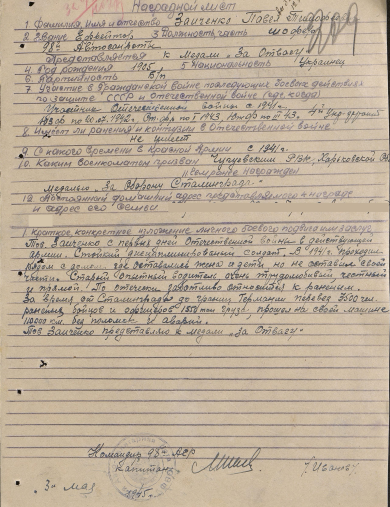 Наградной лист
1 Фамилия, имя и отчество Заиченко Павел
2 Звание Ефрейтор 3 Должность, часть шофер
98й Автосанроты
представляется к Медали „За Отвагу"
4 Год рождения 1905 5 Национальность Украинец
6 Партийность б/п
7 Участие в Гражданской войне последующих боевых действиях
по защите СССР и отечественной войне (где, когда)
войны с 1941 г.
8 Имеет ли ранения и контузии в отечественной войне
не имеет
9 С какого времени в Красной Армии с 1941 г.
10 Каким военкоматом призван Чугуевским РВК, Харьковской
Медалью „За Оборону Сталинграда"
12 Постоянный домашний адрес представляемого к награде
и адрес его семьи
1 краткое конкретное изложение личного боевого подвига или заслуг
Тов. Заиченко с первых дней Отечественной войны в действующей
армии. Стойкий дисциплинированный солдат. В 1941 г. проходил
рядом с домом где оставались жена и дети, но не оставил своей
части. Старый опытный водитель очень трудолюбивый честный
и прямой. По отечески заботливо относится к раненым.
За время от Сталинграда до границ Германии перевез 3500 чел.
раненых бойцов и офицеров груза, прошел на своей машине
км. без поломок и аварий.
Тов Заиченко представляю к медали „За Отвагу"
Командир 98й АСР
капитан
3 мая
1945 г.